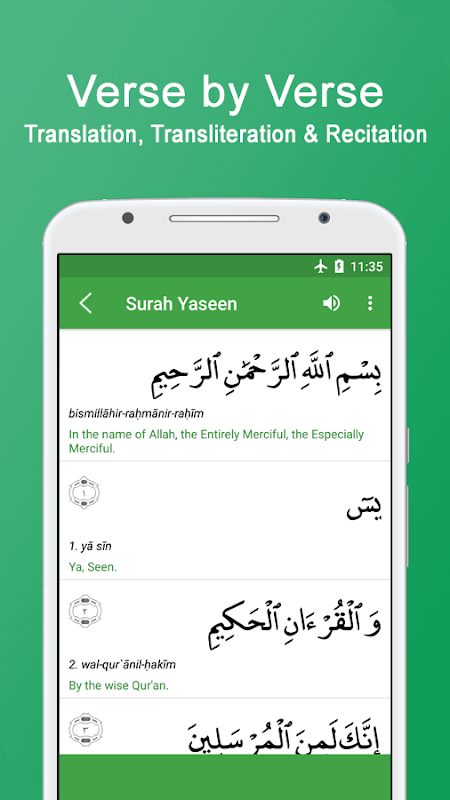 Verse by Verse
Translation, Transliteration & Recitation
11:35
Surah Yaseen
بِسْمِ ٱللَّهِ ٱلرَّحْمَٰنِ ٱلرَّحِيمِ
bismillāhir-raḥmānir-raḥīm
In the name of Allah, the Entirely Merciful, the Especially
Merciful.
١
يسٓ
1. yā sīn
Ya, Seen.
٢
وَ ٱلْقُرْءَانِ ٱلْحَكِيمِ
2. wal-qur`ānil-ḥakīm
By the wise Qur'an.
٣
إِنَّكَ لَمِنَ ٱلْمُرْسَلِينَ